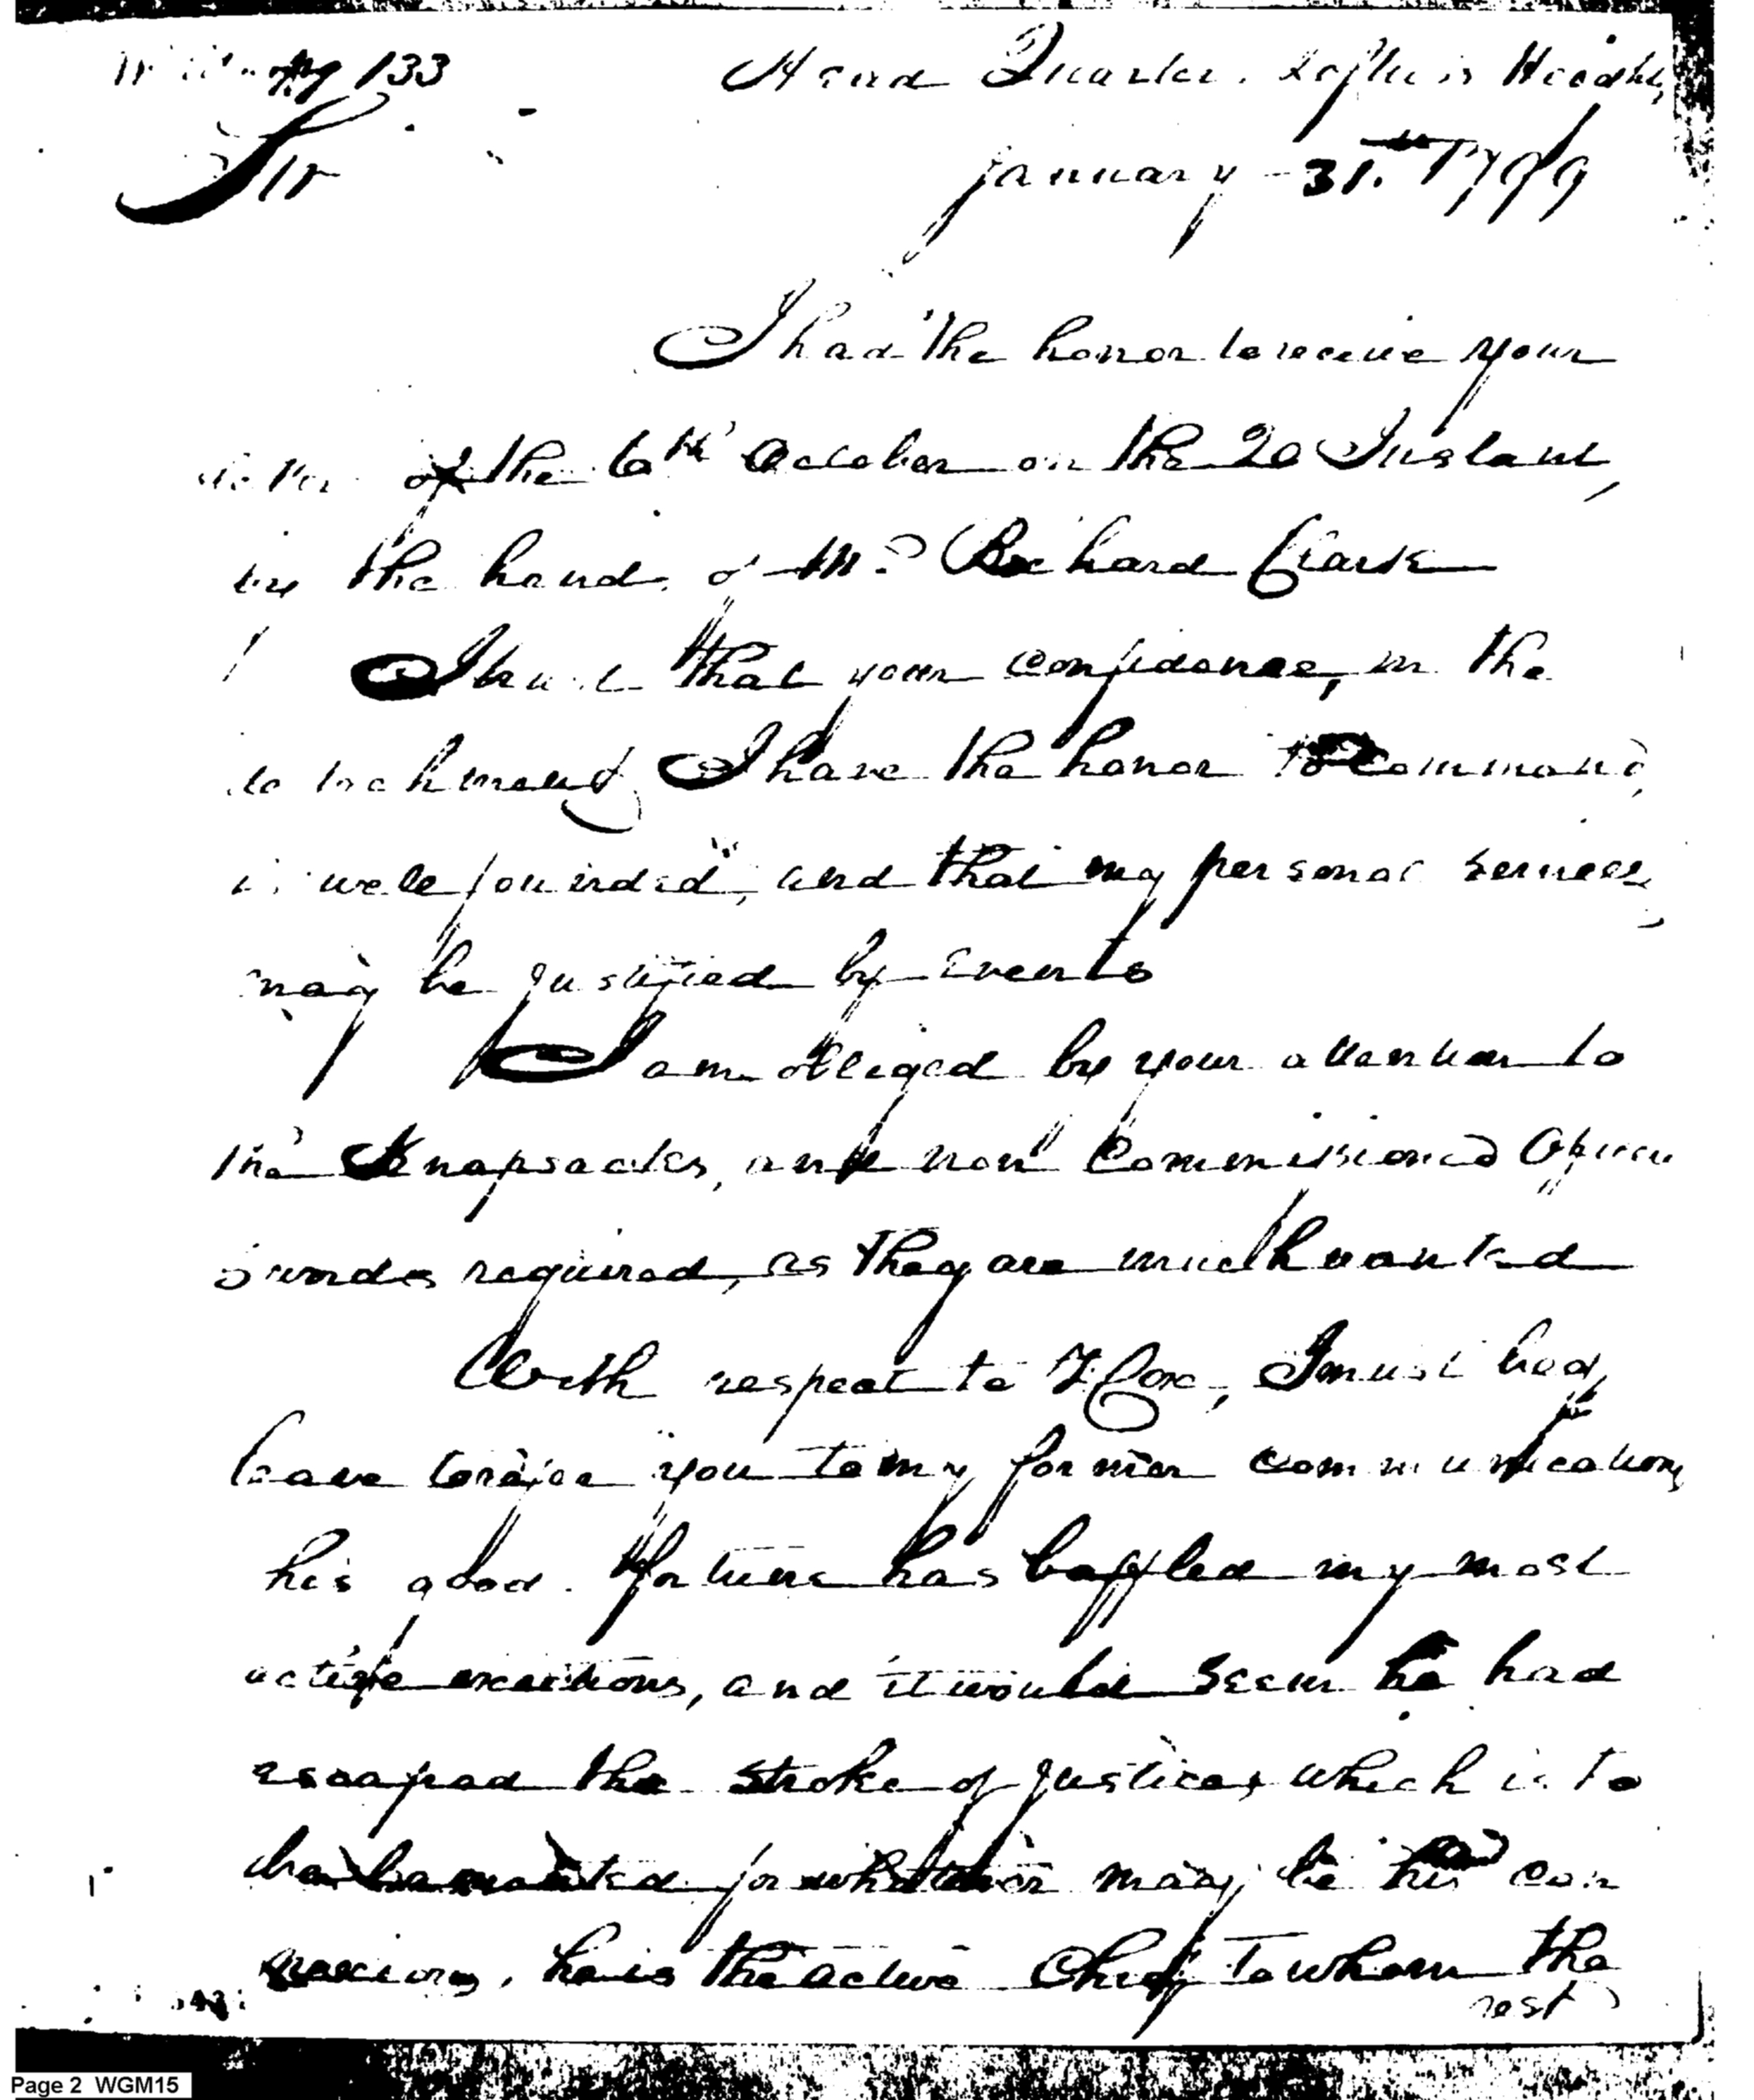 133
Head Quarters Loftus's Heights
Sir
January 31st 1799
I had the honor to receive your
letter of the 6th October on the 20 Instant,
by the hand of Mr Richard Clark
I trust that your confidence, in the
detachment I have the honor to command,
is well founded, and that my personal services
may be justified by events
I am obliged by your attention to
the Knapsacks, and non Commissioned Officers
swords required, as they are much wanted
With respect to Z Cox, I must beg
leave to refer you to my former communications
his good fortune has baffled my most
active exertions, and it would seem he had
escaped the stroke of justice, which is to
be lamented for whatever may be his con
nexions, he is the active Chief to whom the
rest
Page 2 WGM15